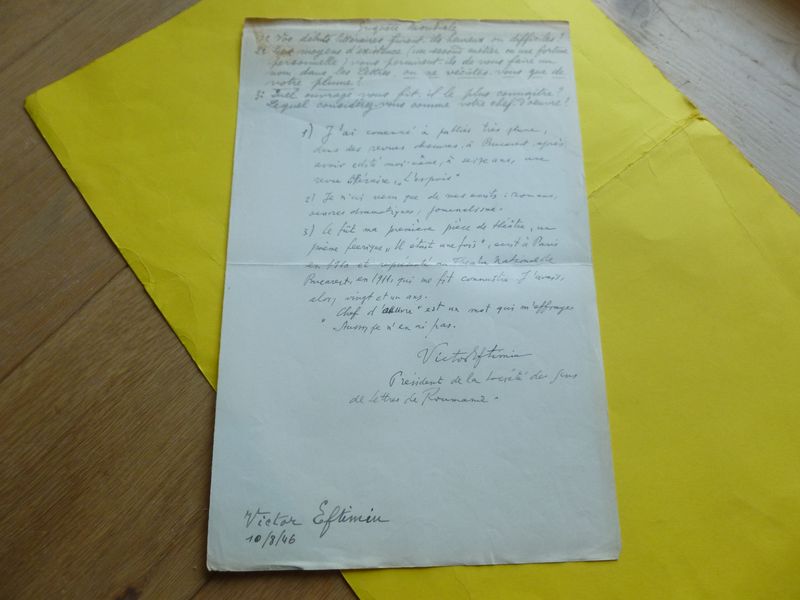 Enquête mondiale
1: Vos débuts littéraires furent-ils heureux ou difficiles?
2: Quels moyens d'existence (un second métier ou une fortune
personnelle) vous permirent-ils de vous faire un
nom dans les Lettres, ou ne vécûtes-vous que de
votre plume?
3: Quel ouvrage vous fit-il le plus connaître?
Lequel considérez-vous comme votre chef d'œuvre?
1) J'ai commencé à publier très jeune,
dans des revues obscures, à Bucarest, après
avoir édité moi-même, à seize ans, une
revue littéraire „L'espoir"
2) Je n'ai vécu que de mes écrits: romans,
œuvres dramatiques, journalisme.
3) Ce fût ma première pièce de théâtre, un
poème féerique „Il était une fois", écrit à Paris
en 1910 et représenté au Théâtre National de
Bucarest, en 1911, qui me fit connaître. J'avais,
alors, vingt et un ans.
„Chef d'œuvre" est un mot qui m'effraye
Aussi je n'en ai pas.
Victor Eftimiu
Président de la Société des Gens
de lettres de Roumanie.
Victor Eftimiu
10/8/46